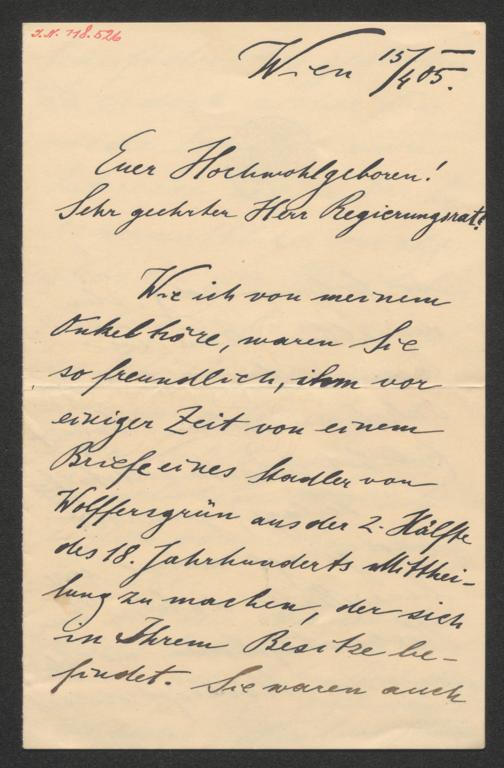 I.N. 118.526
Wien 15/4 05.
Euer Hochwohlgeboren!
Sehr geehrter Herr Regierungsrat!
Wie ich von meinem
Onkel höre, waren Sie
so freundlich, ihm vor
einiger Zeit von einem
Briefe eines Stadler von
Wolffersgrün aus der 2. Hälfte
des 18. Jahrhunderts Mitthei-
lung zu machen, der sich
in Ihrem Besitze be-
findet. Sie waren auch